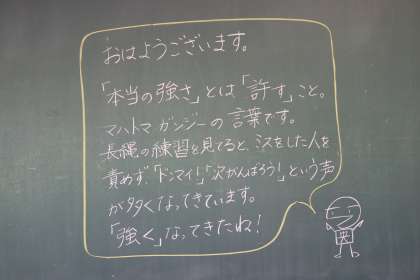 おはようございます。
「本当の強さ」とは「許す」こと。
マハトマ ガンジーの言葉です。
長縄の練習を見てると、ミスをした人を
責めず、「ドンマイ!」「次がんばろう!」という声
が多くなってきています。
「強く」なってきたね!